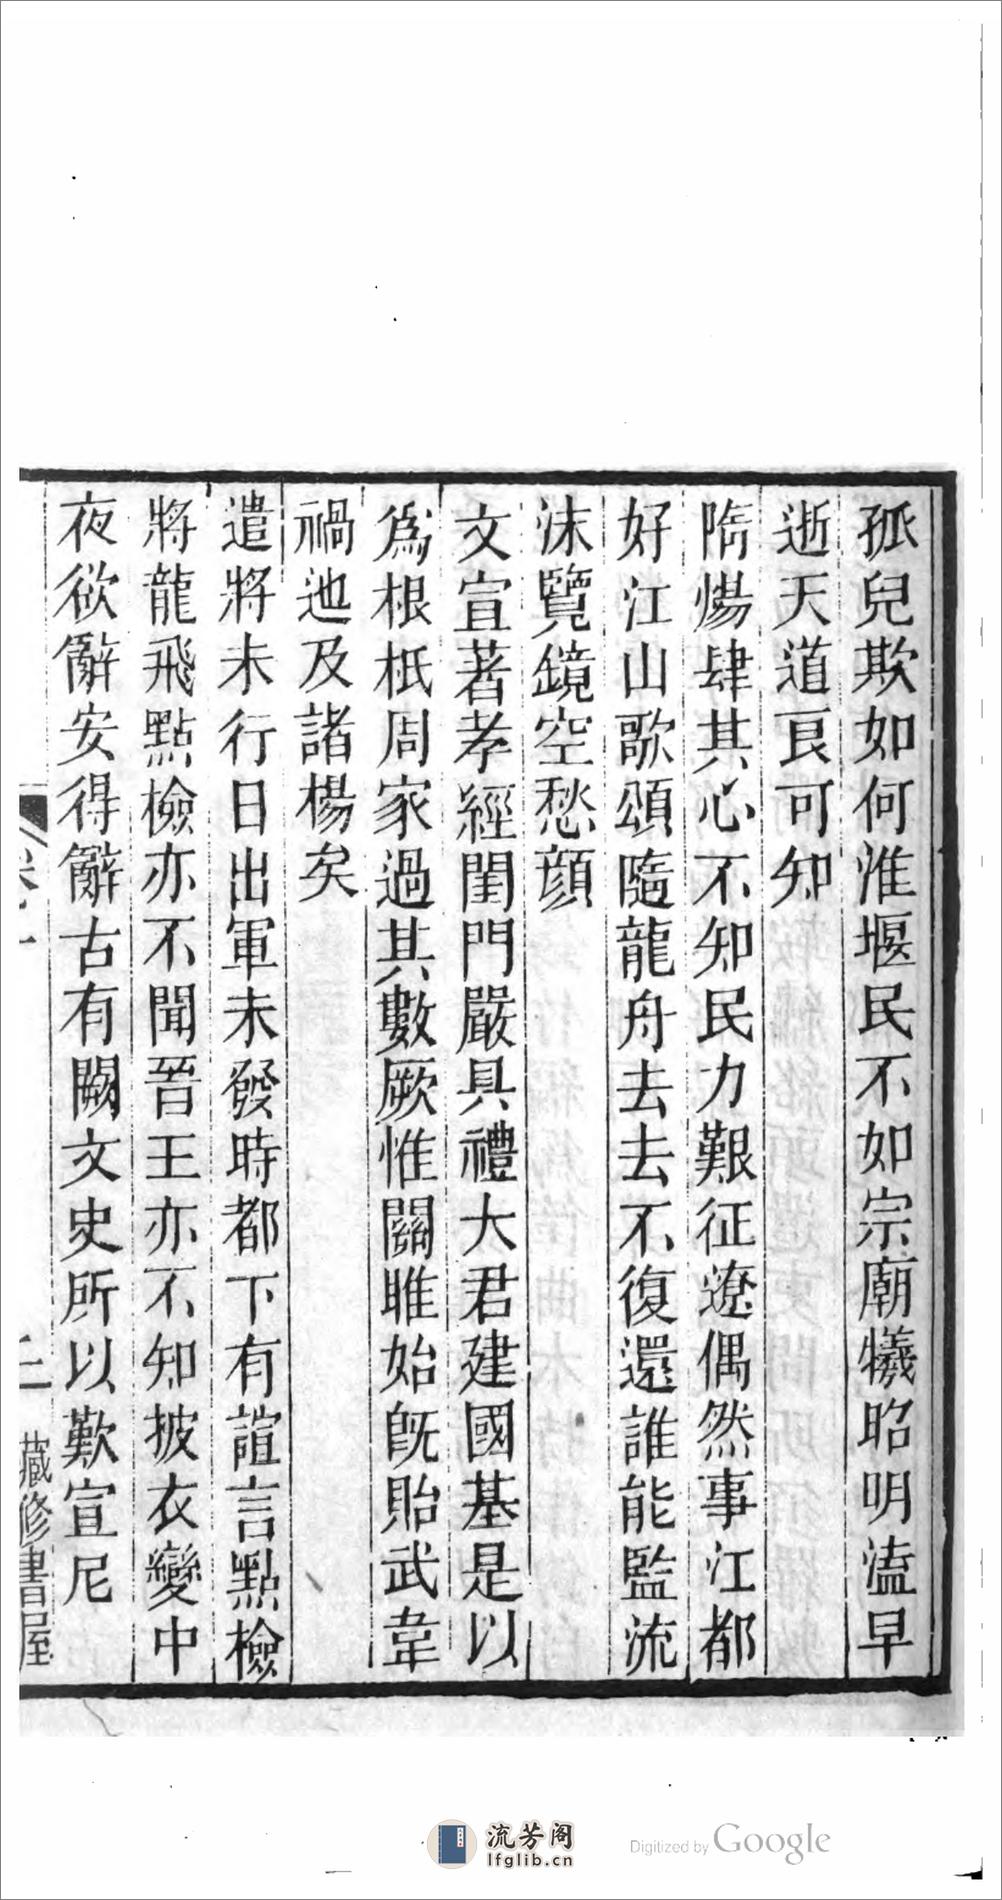 孤兒欺如何淮堰民不如宗廟犧昭明溘早
逝天道良可知
隋煬肆其心不知民力艱征遼偶然事江都
好江山歌頌隨龍舟去去不復還誰能監流
沫覽鏡空愁顔
文宣著孝經閨門嚴具禮大君建國基是以
爲根柢周家過其數厥惟關雎始旣貽武韋
禍迆及諸楊矣
遣將未行日出軍未發時都下有諠言點檢
將龍飛點檢亦不聞晉王亦不知披衣變中
夜欲辭安得辭古有闕文史所以歎宣尼
藏修書屋
流芳阁
lfglib.cn
Digitized by Google